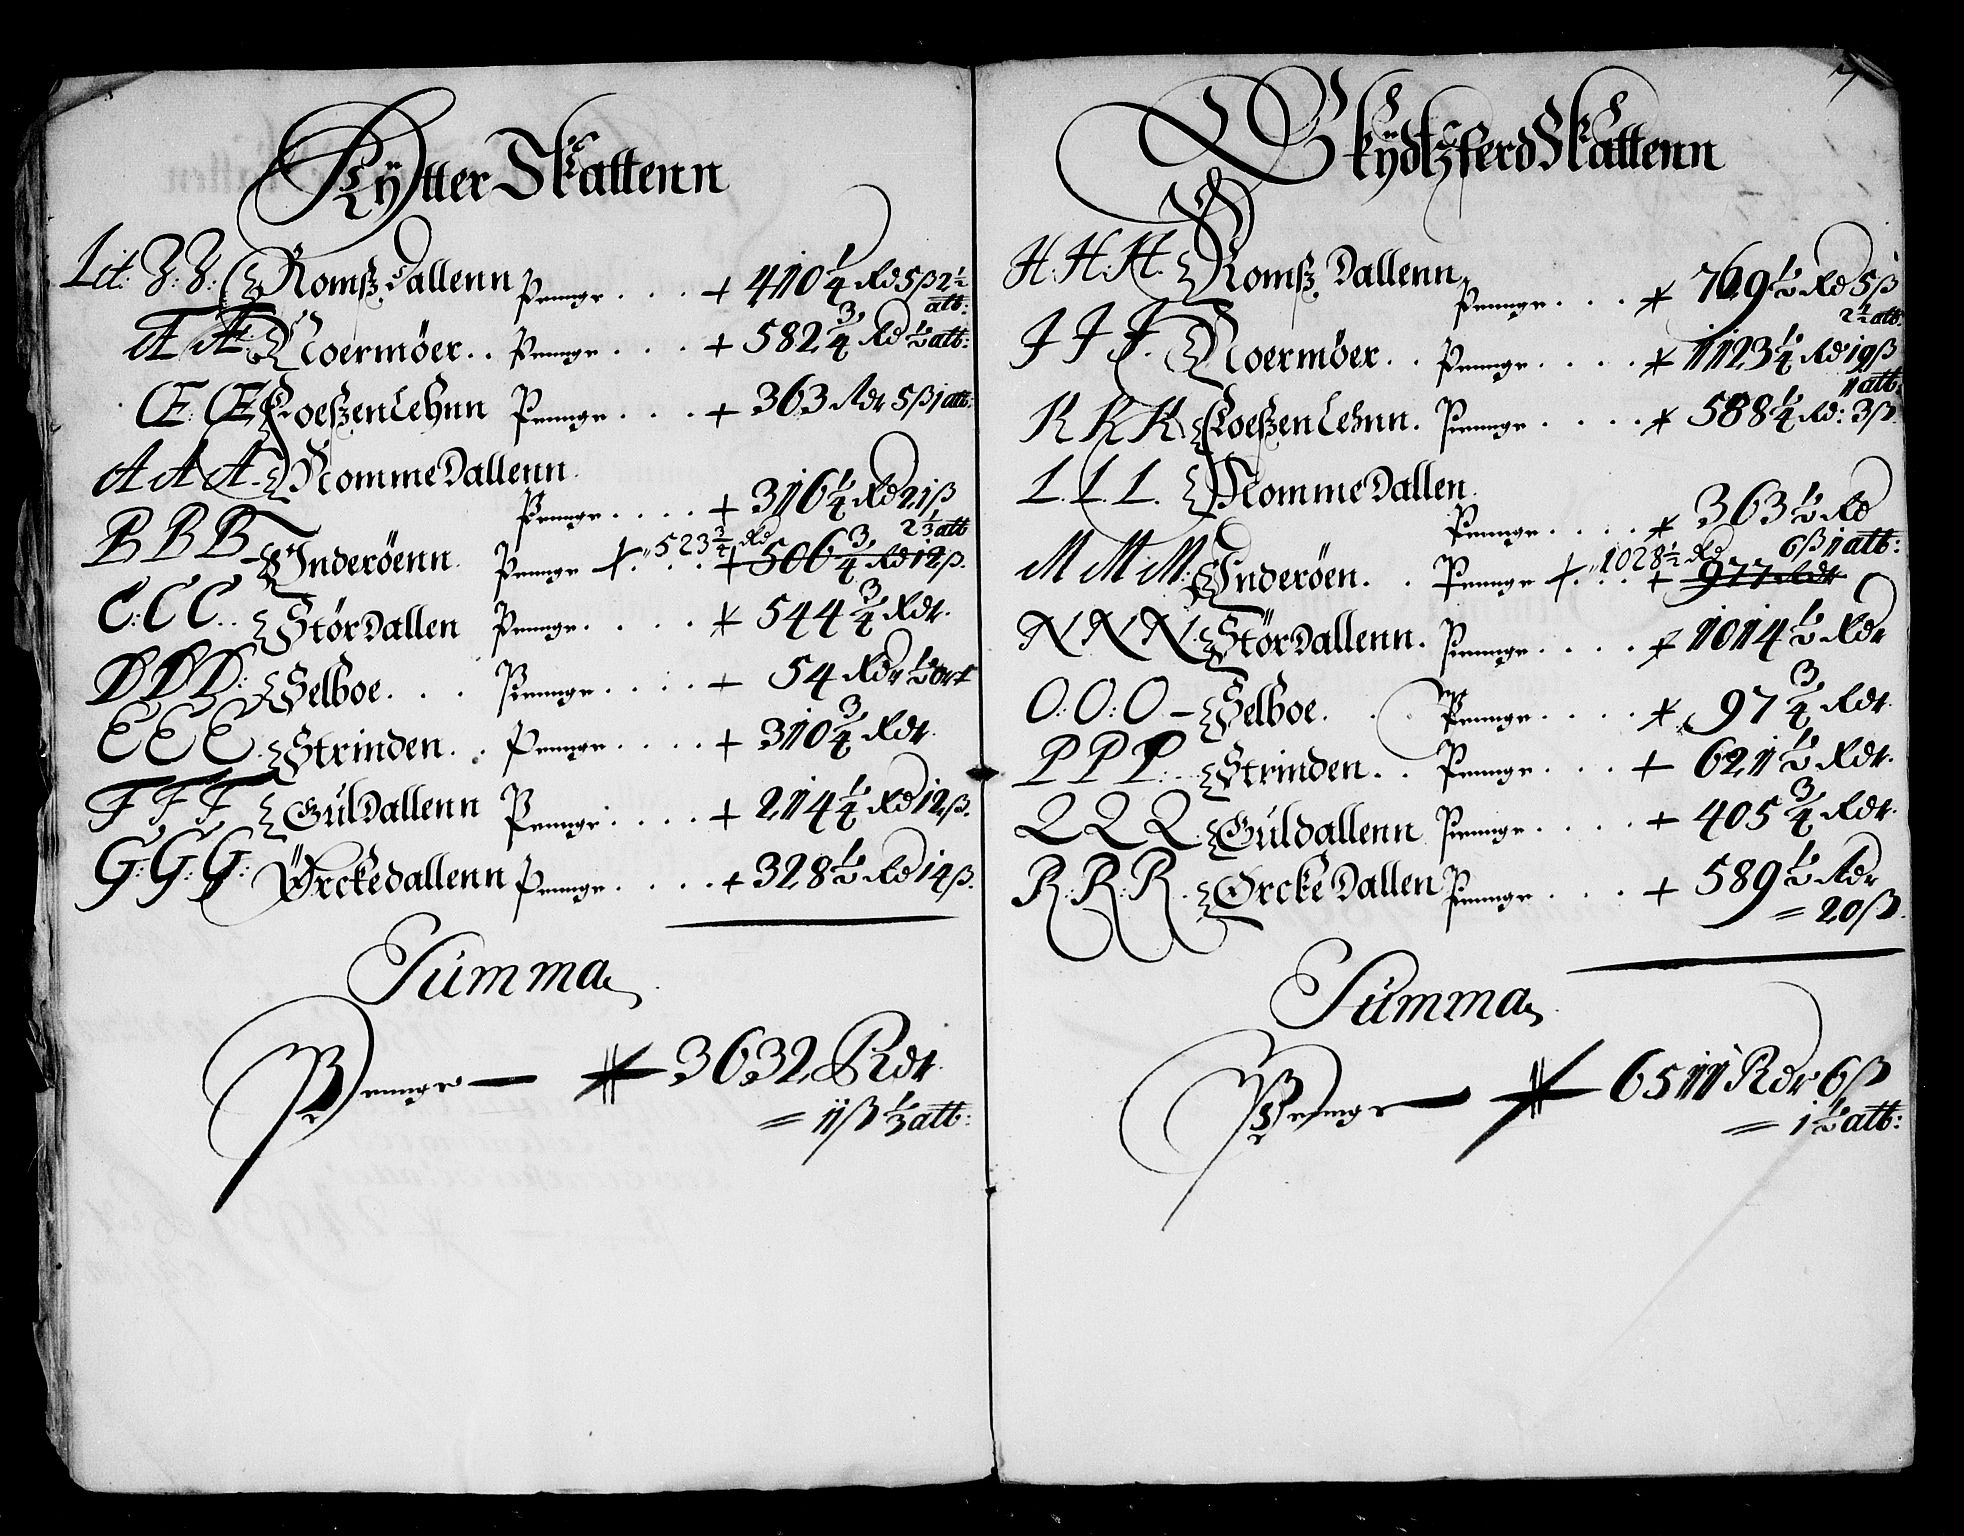 Rÿtter Skattenn
Lit: Z: Z: Romsz dallenn Penninge .... + 410 1/4 Rd 5 ß 2 1/2 alb:
Æ Æ Noermöer.. Penninge .... + 582 3/4 Rd 1/2 alb:
Œ: Œ Foeszen Lehnn Penninge .... + 363 Rdr 5 ß 1 alb:
A A A. Nomme Dallenn.
Penninge .... + 316 1/4 Rd 21 ß
2 1/3 alb
B B B Inderöenn. Penninge +. 523 3/4 Rd + 506 3/4 Rd 12 ß.
C: C C.. Stör Dallen Penninge .... + 544 3/4 Rdr.
D D D: Selboe... Penninge .... + 54 Rdr 1/2 ort
E E E. Strinden.. Penninge .... + 310 3/4 Rdr.
F F F Gúl Dallenn Penninge .... + 214 1/4 Rd 12 ß.
G: G: G: Örckedallenn Penninge .... + 328 1/2 Rd 14 ß.
Súmma
Penninge — 3632 Rdr.
= 11 ß 1/3 alb:
7
Skÿdtzferd Skattenn
H. H. H. Romsz Dallenn
Penninge .... + 769 1/2 Rd 5 ß
2 1/2 alb:
J J J. Noermöer.. Penninge .... + 1123 1/4 Rd 19 ß
1 alb:
K K K Foeszen Lehnn. Penninge .... + 588 1/4 Rd: 3 ß.
L. L. L. Nomme Dallen.
Penninge .... + 363 1/2 Rd
6 ß 1 alb:
M M M: Inderöen.. Penninge +. 1028 1/2 Rd + 977 Rdr
N N N. Stör Dallenn. Penninge .... + 1014 1/2 Rdr
O: O: O – Selboe.. Penninge .... + 97 3/4 Rdr.
P P P... Strinden.. Penninge ... + 621 1/2 Rdr.
Q Q Q. Gúldallenn Penninge .... + 405 3/4 Rdr.
R: R: R. Örcke Dallen Penninge ... + 589 1/2 Rdr
= 20 ß.
Súmma
Penninge — 6511 Rdr 6 ß
= 1 1/2 alb: